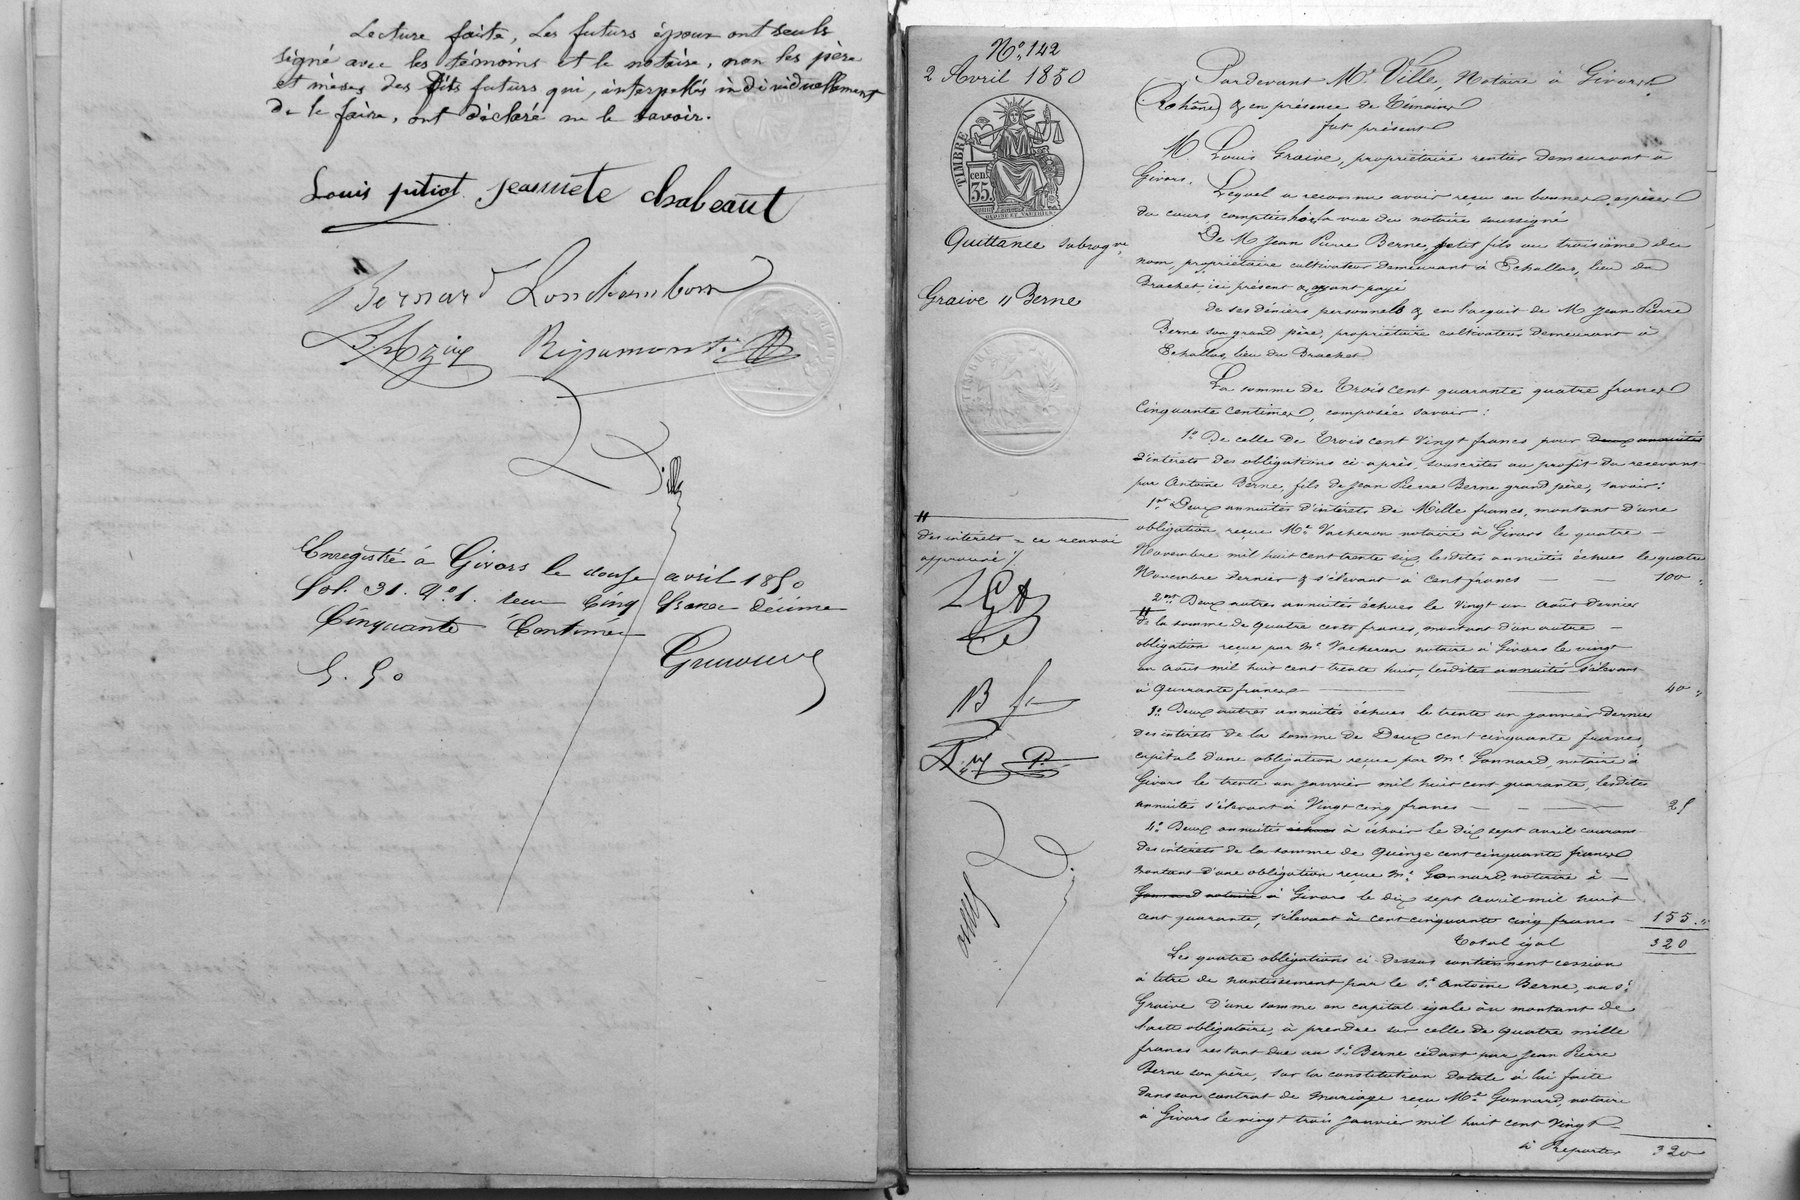 Lecture faite, les futurs époux ont seuls
signé avec les témoins et le notaire, non les père
et mères des dits futurs qui, interpellés individuellement
de le faire, ont déclaré ne le savoir.
Louis pitiot Jeannete chabeaut
Bernard
Ripamonti
Ville
Enregistré à Givors le douze avril 1850
fol. 31. reçu cinq francs décime
Cinquante Centimes
5. 50
N° 142
2 Avril 1850
TIMBRE
35
Quittance subrogve
Graive " Berne
des intérêts = ce renvoi
approuvé /
Pardevant Me Ville, Notaire à Givors
(Rhône) & en présence de témoins
fut présent
M Louis Graive, propriétaire rentier demeurant à
Givors.
Lequel a reconnu avoir reçu en bonnes espèces
du cours, comptées à la vue du notaire soussigné
De M Jean Pierre Berne, petit fils au troisième du
nom, propriétaire cultivateur demeurant à Echallas, lieu du
Drachet, ici présent & ayant payé
de ses deniers personnels & en l'acquit de M Jean Pierre
Berne son grand père, propriétaire cultivateur demeurant à
Echallas, lieu du Drachet
La somme de Trois cent quarante quatre francs
Cinquante centimes, composée savoir :
1° De celle de Trois cent vingt francs pour deux annuités
d'intérêts des obligations ci-après, souscrites au profit du recevant
par Antoine Berne, fils de Jean Pierre Berne grand père, savoir :
1nt Deux annuités d'intérêts de Mille francs, montant d'une
obligation reçue Me Vacheron notaire à Givors le quatre
Novembre mil huit cent trente six, lesdites annuités échues le quatre
Novembre dernier & s'élevant à Cent francs — — 100 "
2nt Deux autres annuités échues le vingt un août dernier
de la somme de quatre cents francs, montant d'un autre
obligation reçue par Me Vacheron notaire à Givors le vingt
un août mil huit cent trente huit, lesdites annuités s'élevant
à Quarante francs — 40 "
3° Deux autres annuités échues le trente un janvier dernier
des intérêts de la somme de Deux cent cinquante francs,
capital d'une obligation reçue par Me Gonnard, notaire à
Givors le trente un janvier mil huit cent quarante, lesdites
annuités s'élevant à Vingt cinq francs — 25
4° Deux annuités échues à échoir le dix sept avril courant
des intérêts de la somme de Quinze cent cinquante francs
montant d'une obligation reçue Me Gonnard, notaire à —
Gonnard notaire à Givors le dix sept avril mil huit
cent quarante, s'élevant à cent cinquante cinq francs — 155 "
Total égal 320
Les quatre obligations ci-dessus contiennent cession
à titre de nantissement par le Sr Antoine Berne, au Sr
Graive d'une somme en capital égale au montant de
l'acte obligatoire, à prendre sur celle de quatre mille
francs restant due au Sr Berne cédant par Jean Pierre
Berne son père, sur la constitution dotale à lui faite
dans son contrat de mariage reçu Me Gonnard, notaire
à Givors le vingt trois janvier mil huit cent vingt
à Reporter 320